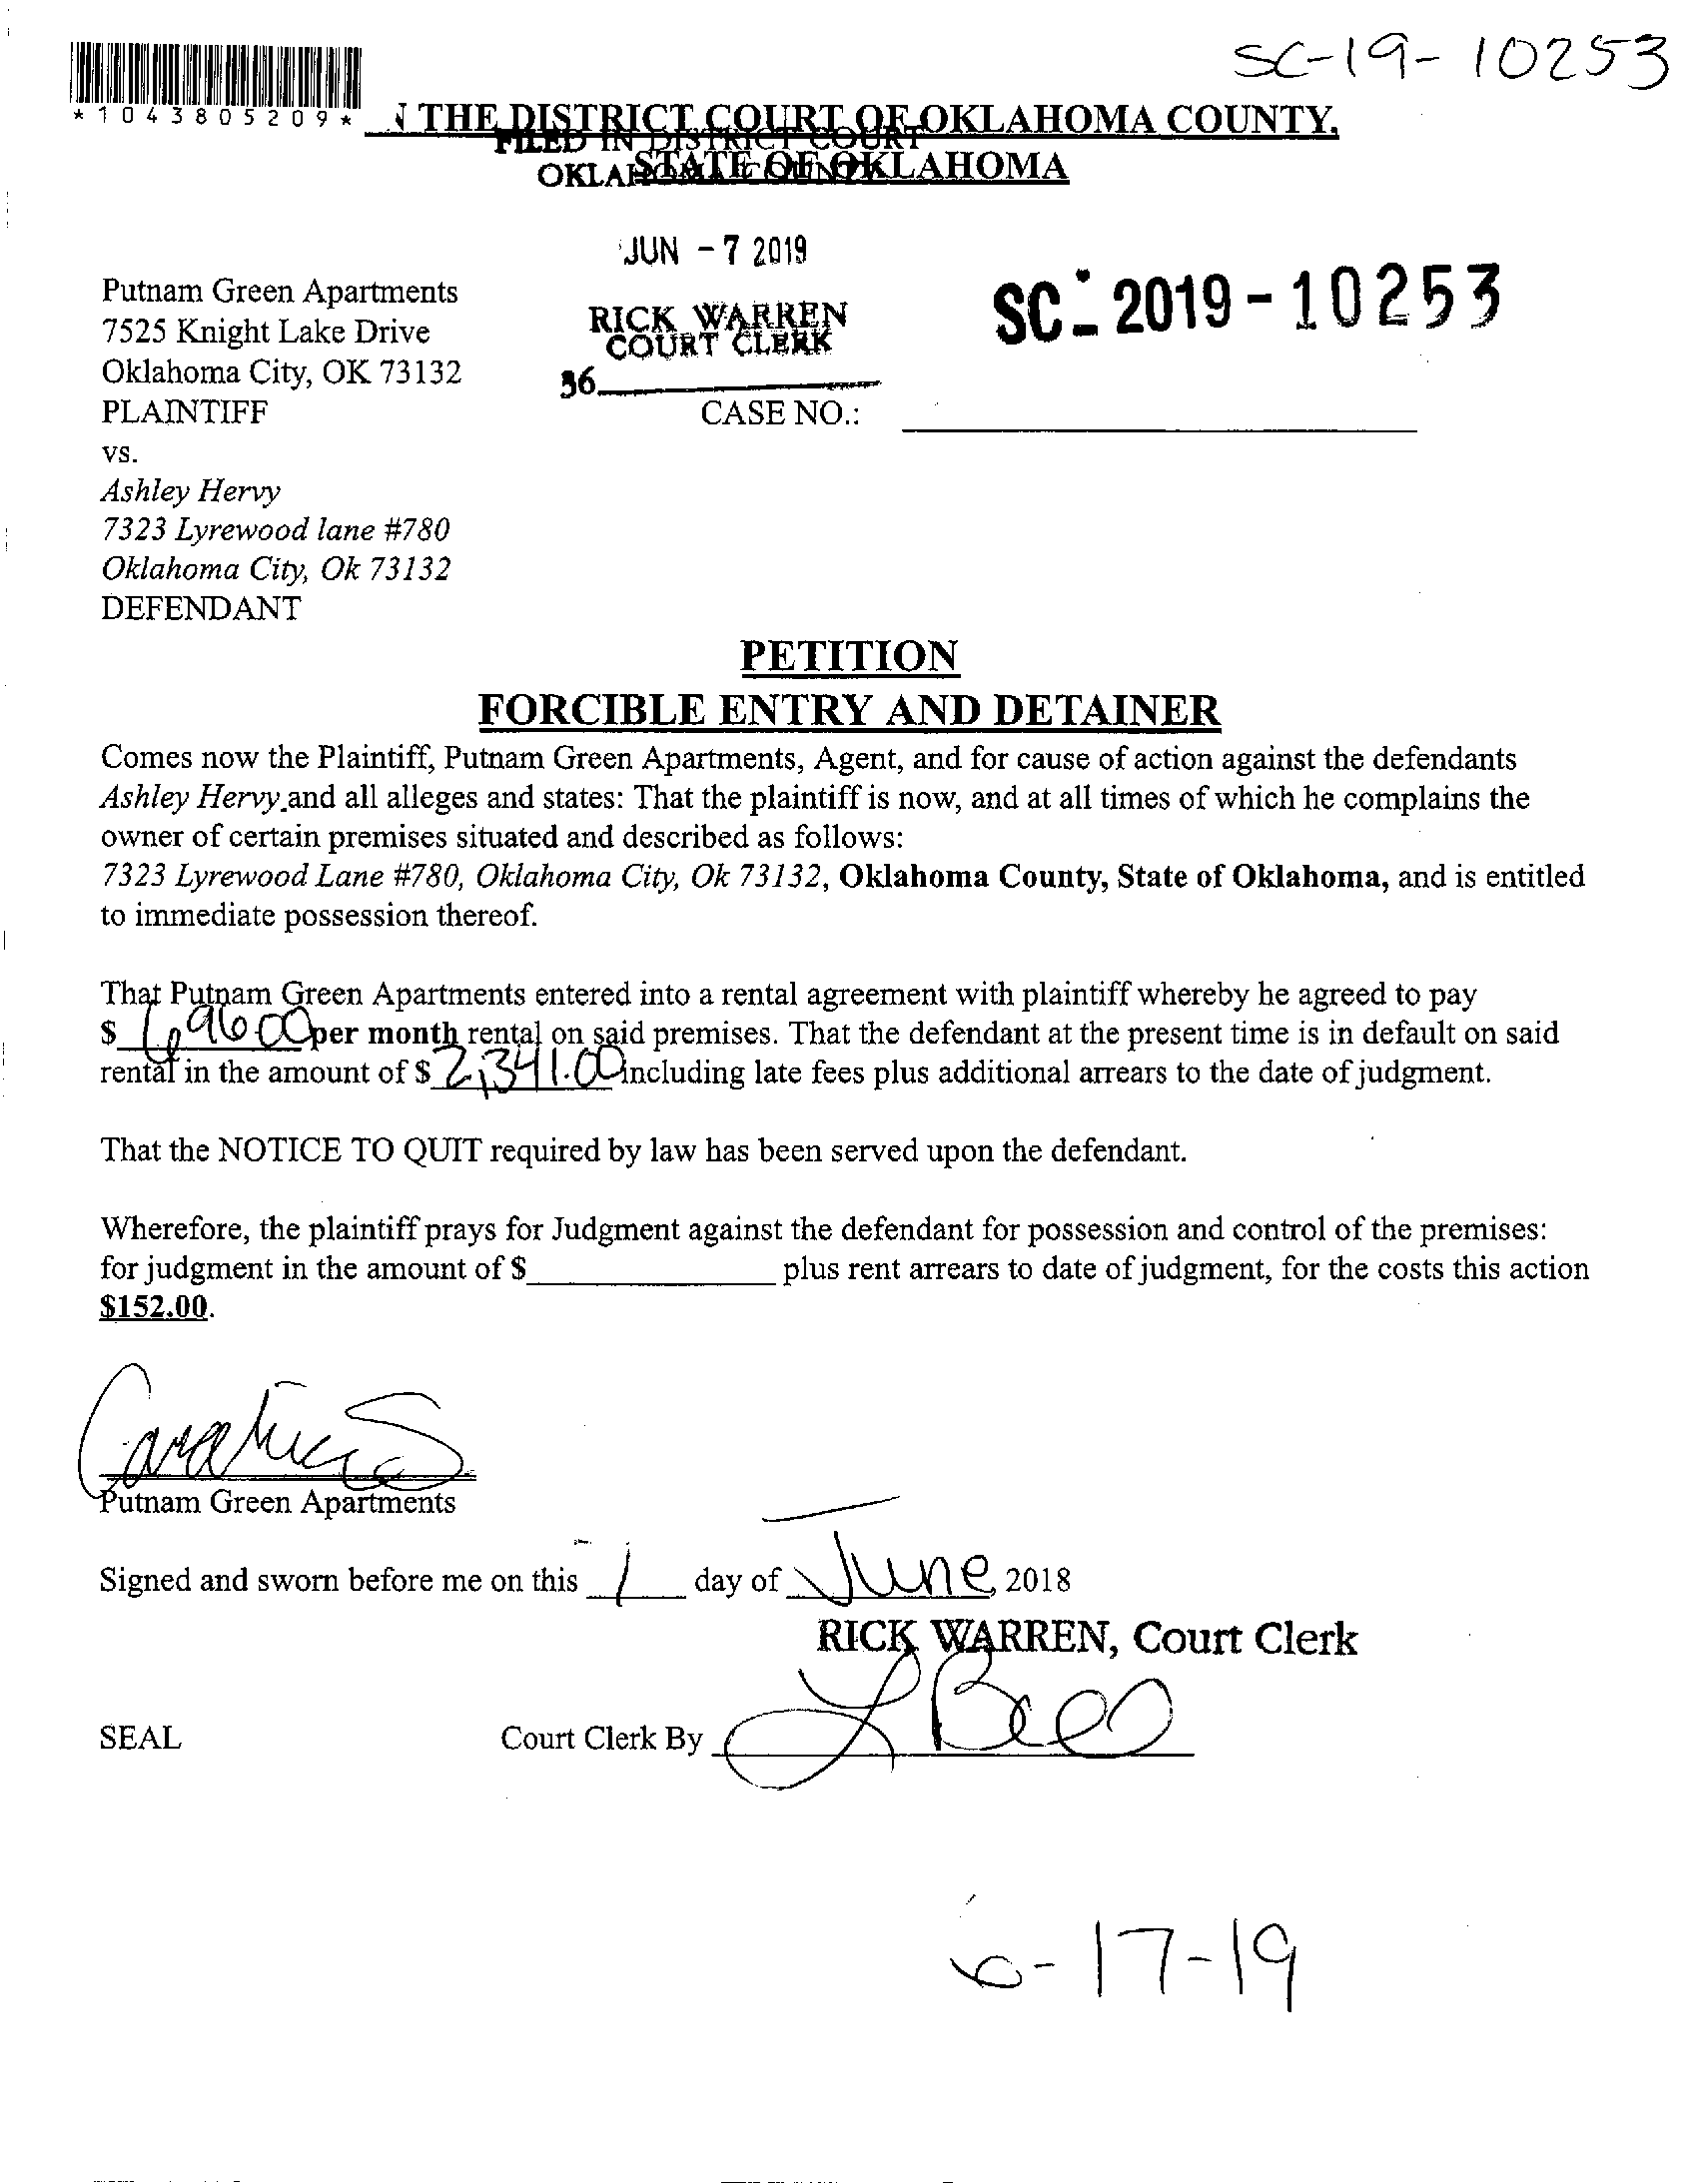 SC-19-10253
*1043805209*
N THE DISTRICT COURT OF OKLAHOMA COUNTY,
FILED IN DISTRICT COURT
STATE OF OKLAHOMA
OKLAHOMA COUNTY
JUN - 7 2019
Putnam Green Apartments
7525 Knight Lake Drive
Oklahoma City, OK 73132
PLAINTIFF
RICK WARREN
COURT CLERK
36
SC - 2019 - 10253
CASE NO.:
vs.
Ashley Hervy
7323 Lyrewood lane #780
Oklahoma City, Ok 73132
DEFENDANT
PETITION
FORCIBLE ENTRY AND DETAINER
Comes now the Plaintiff, Putnam Green Apartments, Agent, and for cause of action against the defendants
Ashley Hervy and all alleges and states: That the plaintiff is now, and at all times of which he complains the
owner of certain premises situated and described as follows:
7323 Lyrewood Lane #780, Oklahoma City, Ok 73132, Oklahoma County, State of Oklahoma, and is entitled
to immediate possession thereof.
That Putnam Green Apartments entered into a rental agreement with plaintiff whereby he agreed to pay
$ 696.00 per month rental on said premises. That the defendant at the present time is in default on said
rental in the amount of $ 2,341.00 including late fees plus additional arrears to the date of judgment.
That the NOTICE TO QUIT required by law has been served upon the defendant.
Wherefore, the plaintiff prays for Judgment against the defendant for possession and control of the premises:
for judgment in the amount of $ plus rent arrears to date of judgment, for the costs this action
$152.00.
Putnam Green Apartments
Signed and sworn before me on this 7 day of June, 2018
RICK WARREN, Court Clerk
SEAL
Court Clerk By
6-17-19